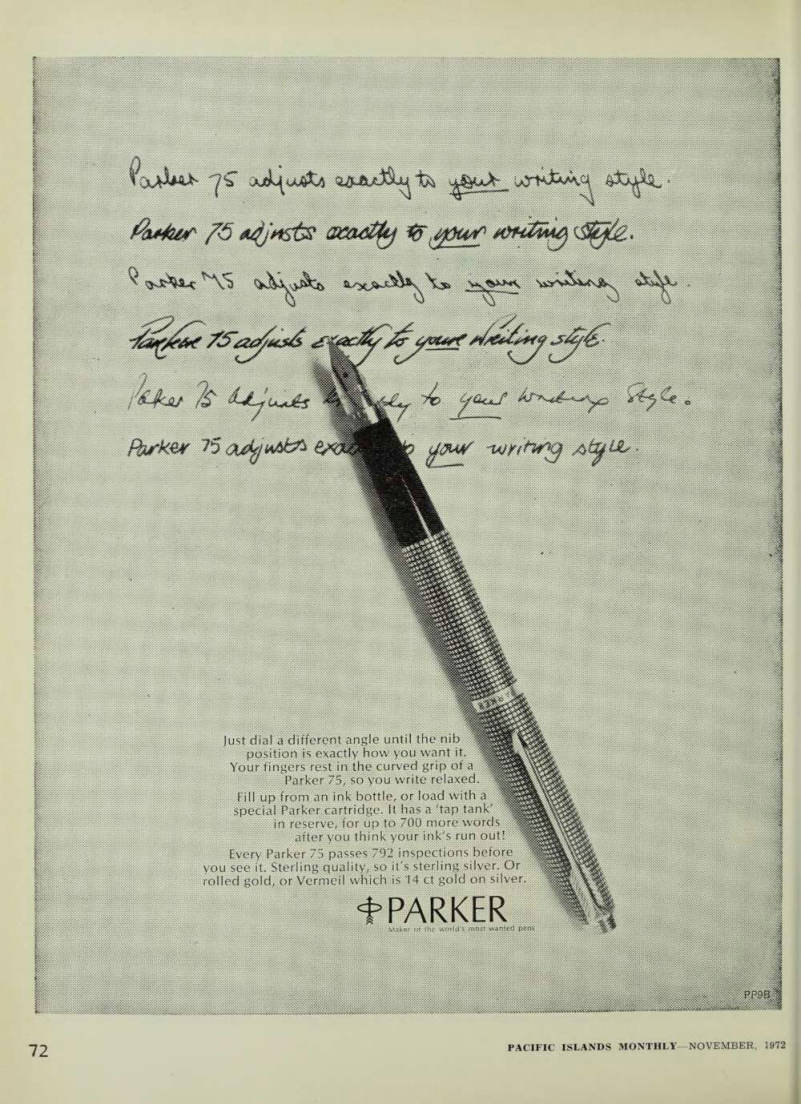 Parker 75 adjusts exactly to your writing style.
Parker 75 adjusts exactly to your writing style.
Parker 75 adjusts exactly to your writing style.
Parker 75 adjusts exactly to your writing style.
Parker 75 adjusts to your writing style.
Parker 75 adjusts your writing style.
PARKER
Just dial a different angle until the nib
position is exactly how you want it.
Your fingers rest in the curved grip of a
Parker 75, so you write relaxed.
Fill up from an ink bottle, or load with a
special Parker cartridge. It has a 'tap tank'
in reserve, for up to 700 more words
after you think your ink's run out!
Every Parker 75 passes 792 inspections before
you see it. Sterling quality, so it's sterling silver. Or
rolled gold, or Vermeil which is 14 ct gold on silver.
PARKER
Maker of the world's most wanted pens
PP9B
72
PACIFIC ISLANDS MONTHLY—NOVEMBER, 1972